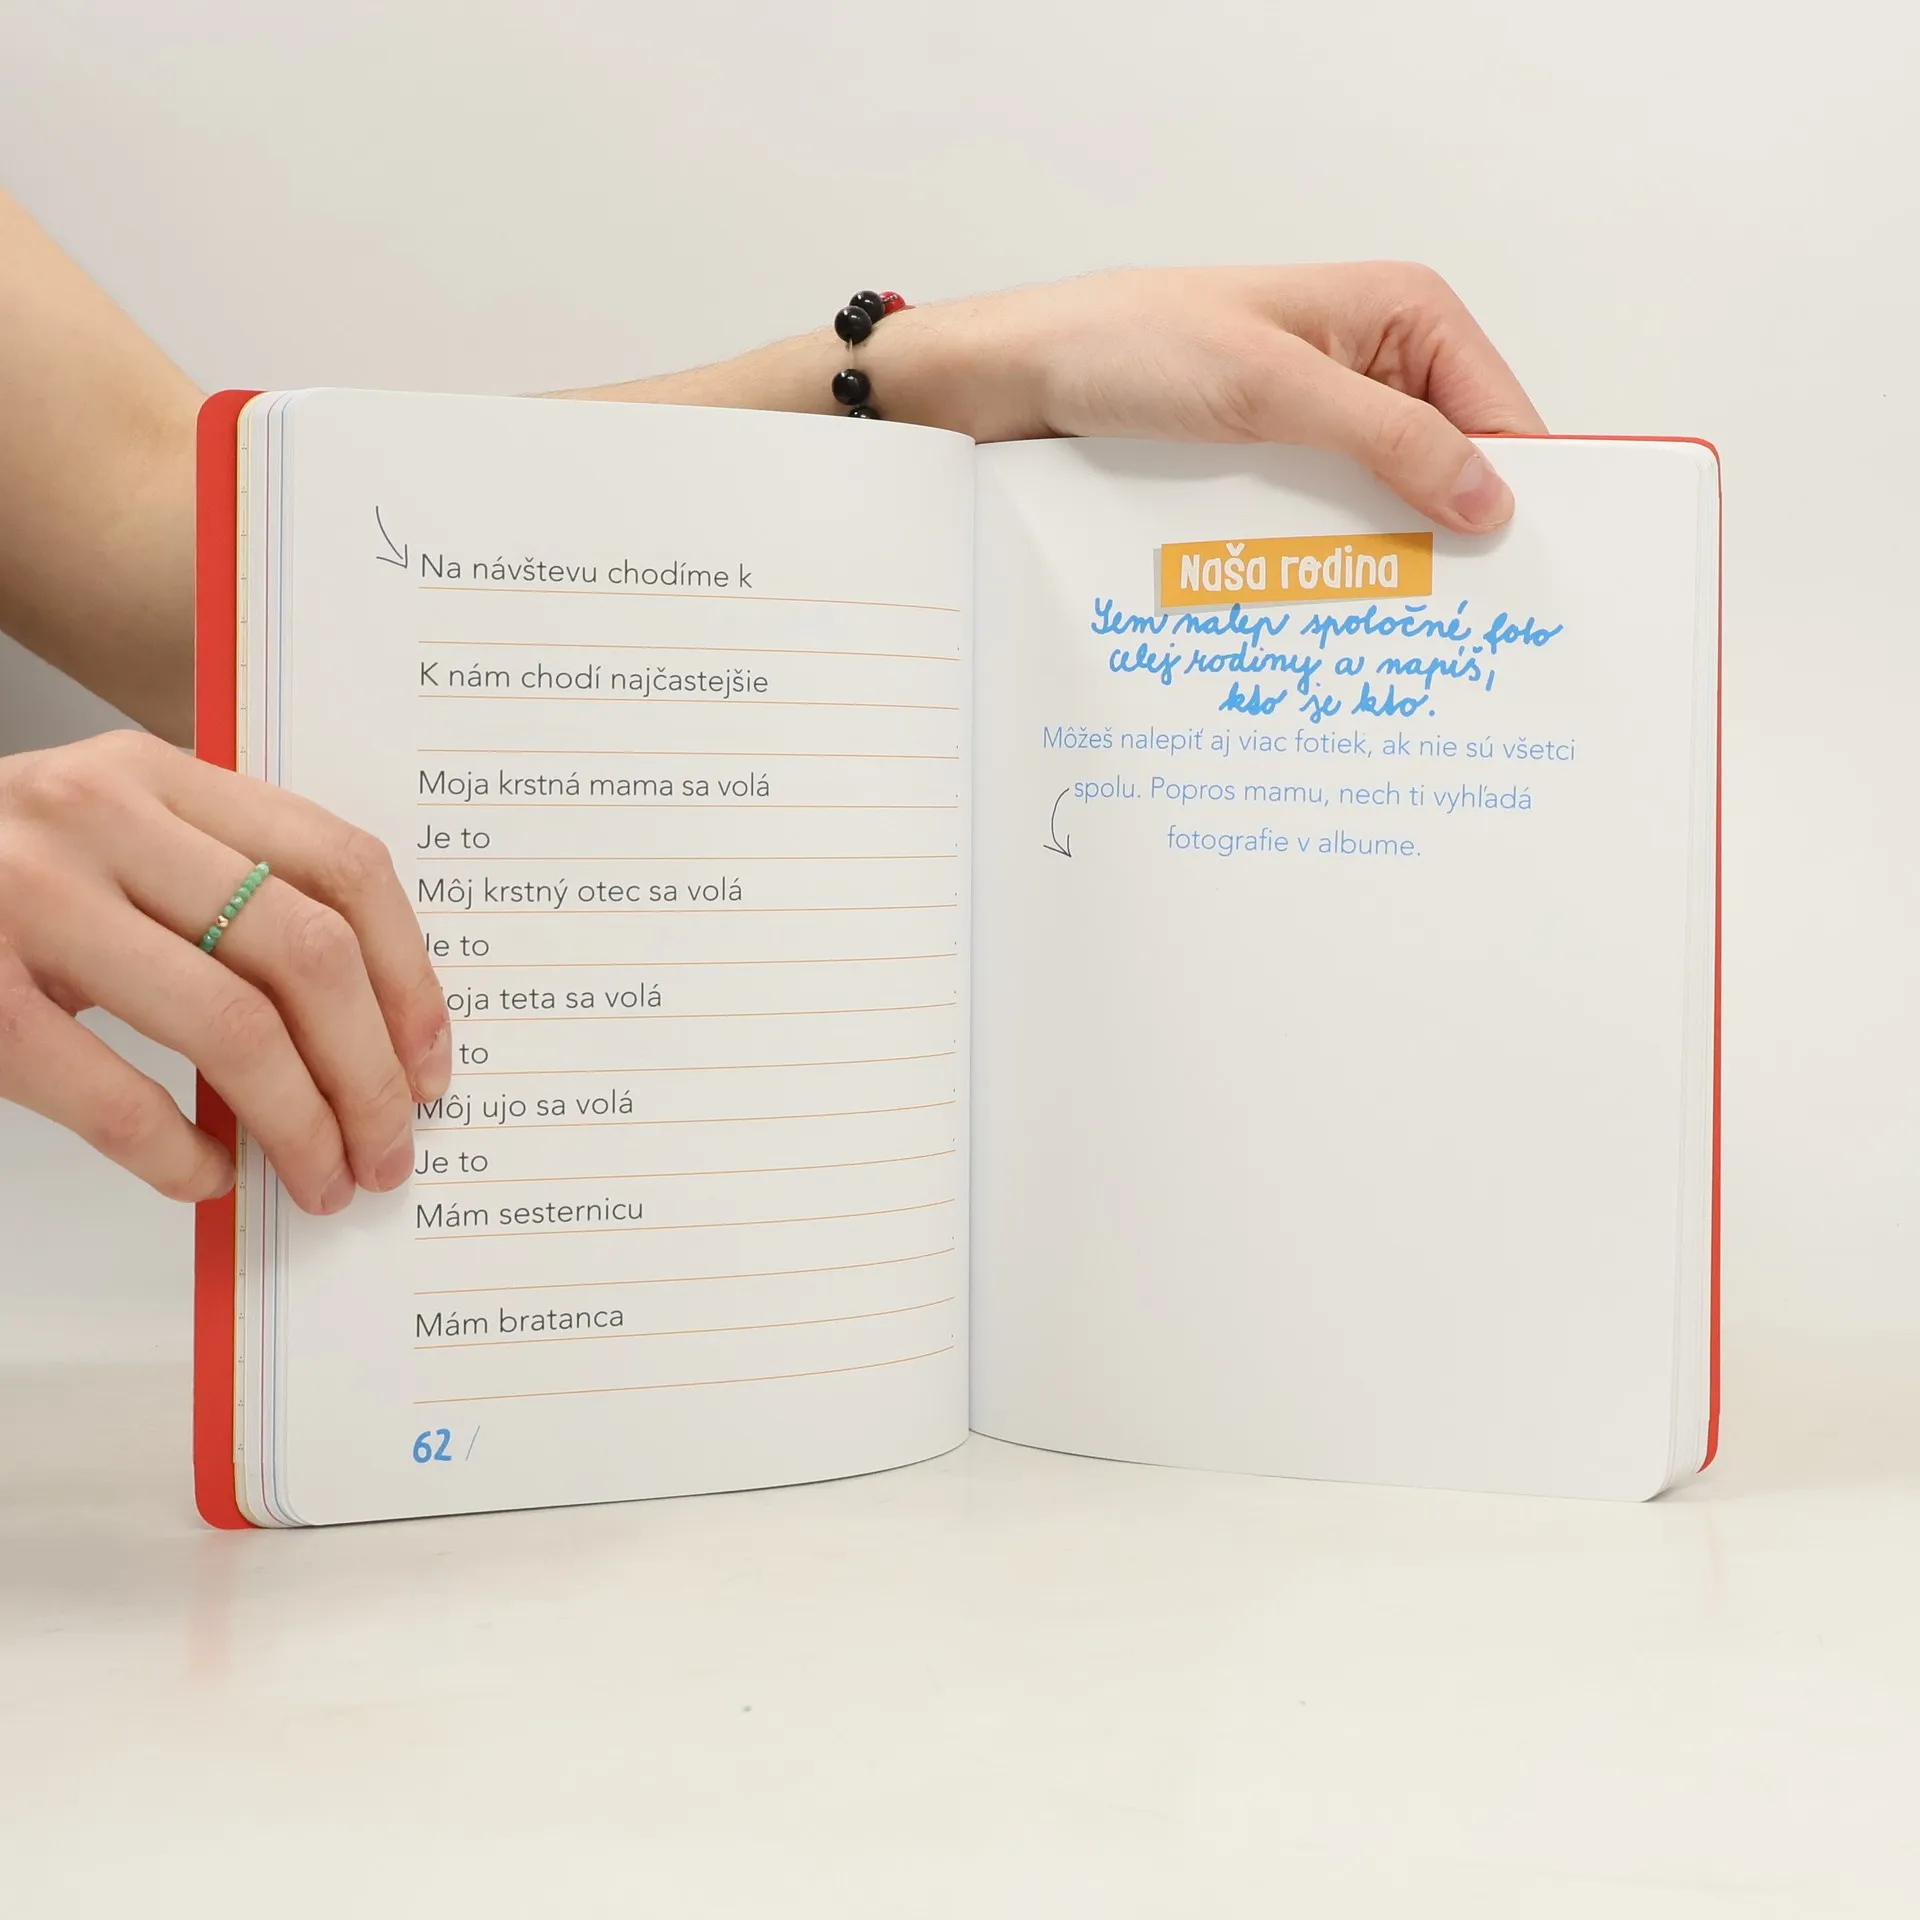 Na návštevu chodíme k
K nám chodí najčastejšie
Moja krstná mama sa volá
Je to
Môj krstný otec sa volá
Je to
teta sa volá
to
Môj ujo sa volá
Je to
Mám sesternicu
Mám bratanca
62 /
Naša rodina
Sem nalep spoločné foto
celej rodiny a napíš,
kto je kto.
Môžeš nalepiť aj viac fotiek, ak nie sú všetci
spolu. Popros mamu, nech ti vyhľadá
fotografie v albume.